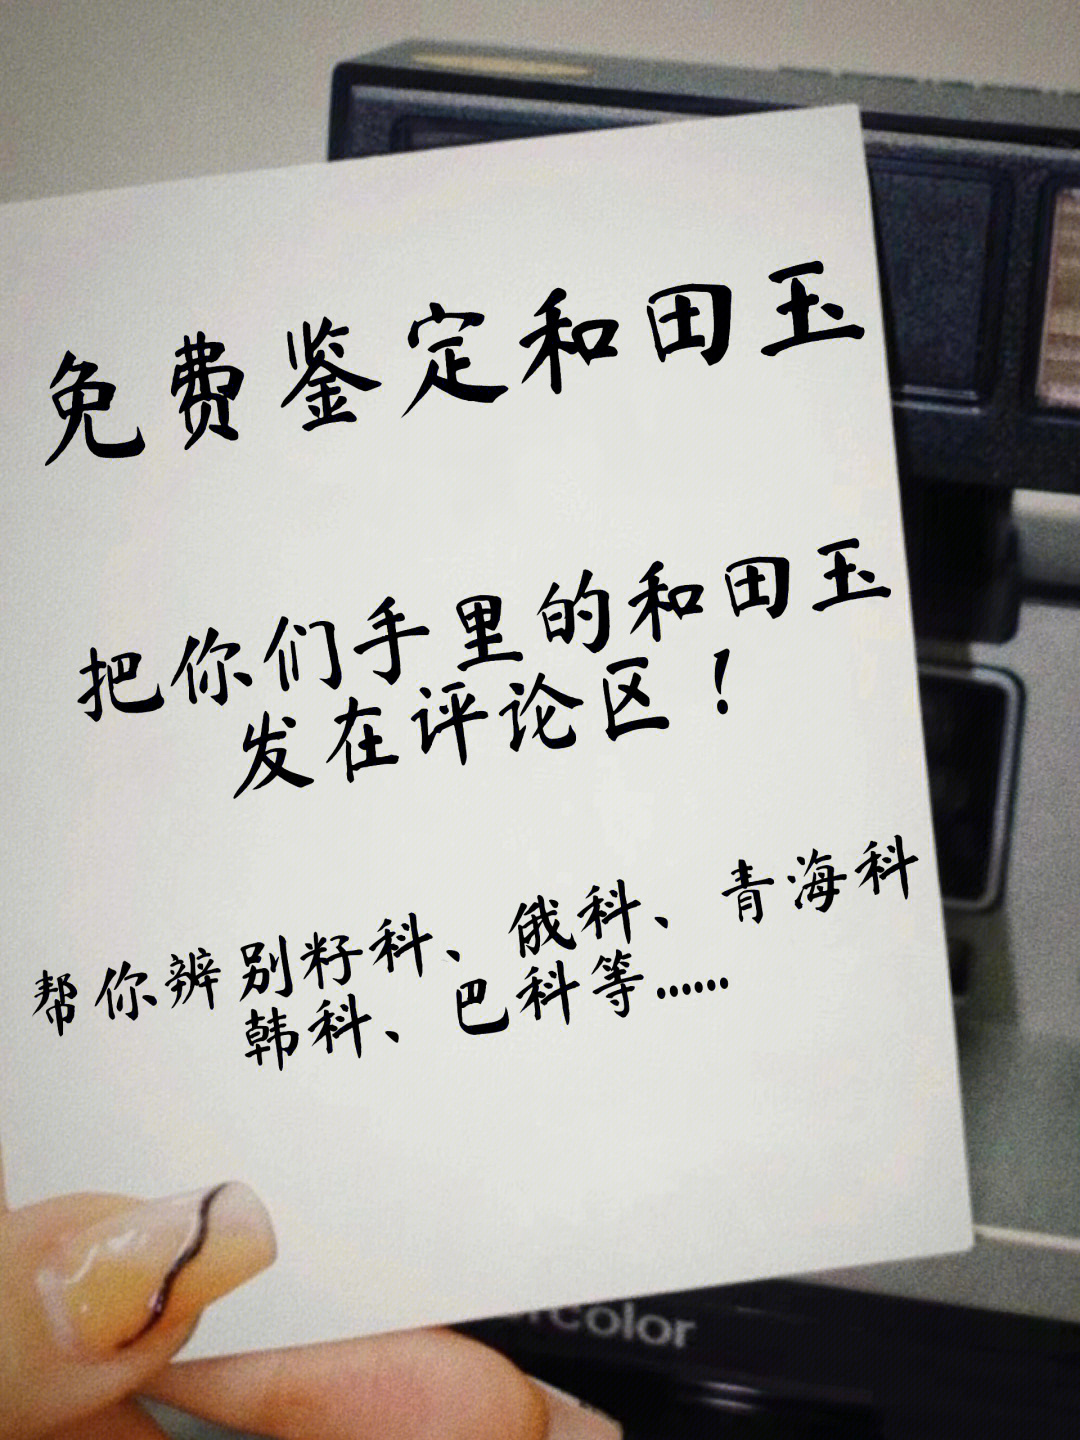 免费鉴定和田玉
把你们手里的和田玉
发在评论区！
帮你辨别籽科、俄科、青海科
韩科、巴科等……
color